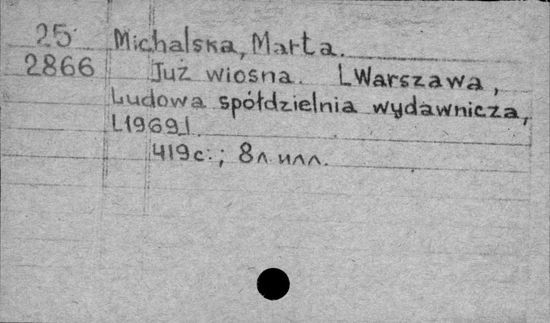 25 Michalska, Marta.
2866 Już wiosna. [Warszawa,
Ludowa spółdzielnia wydawnicza,
[1969].
419 с.; 8 л. илл.